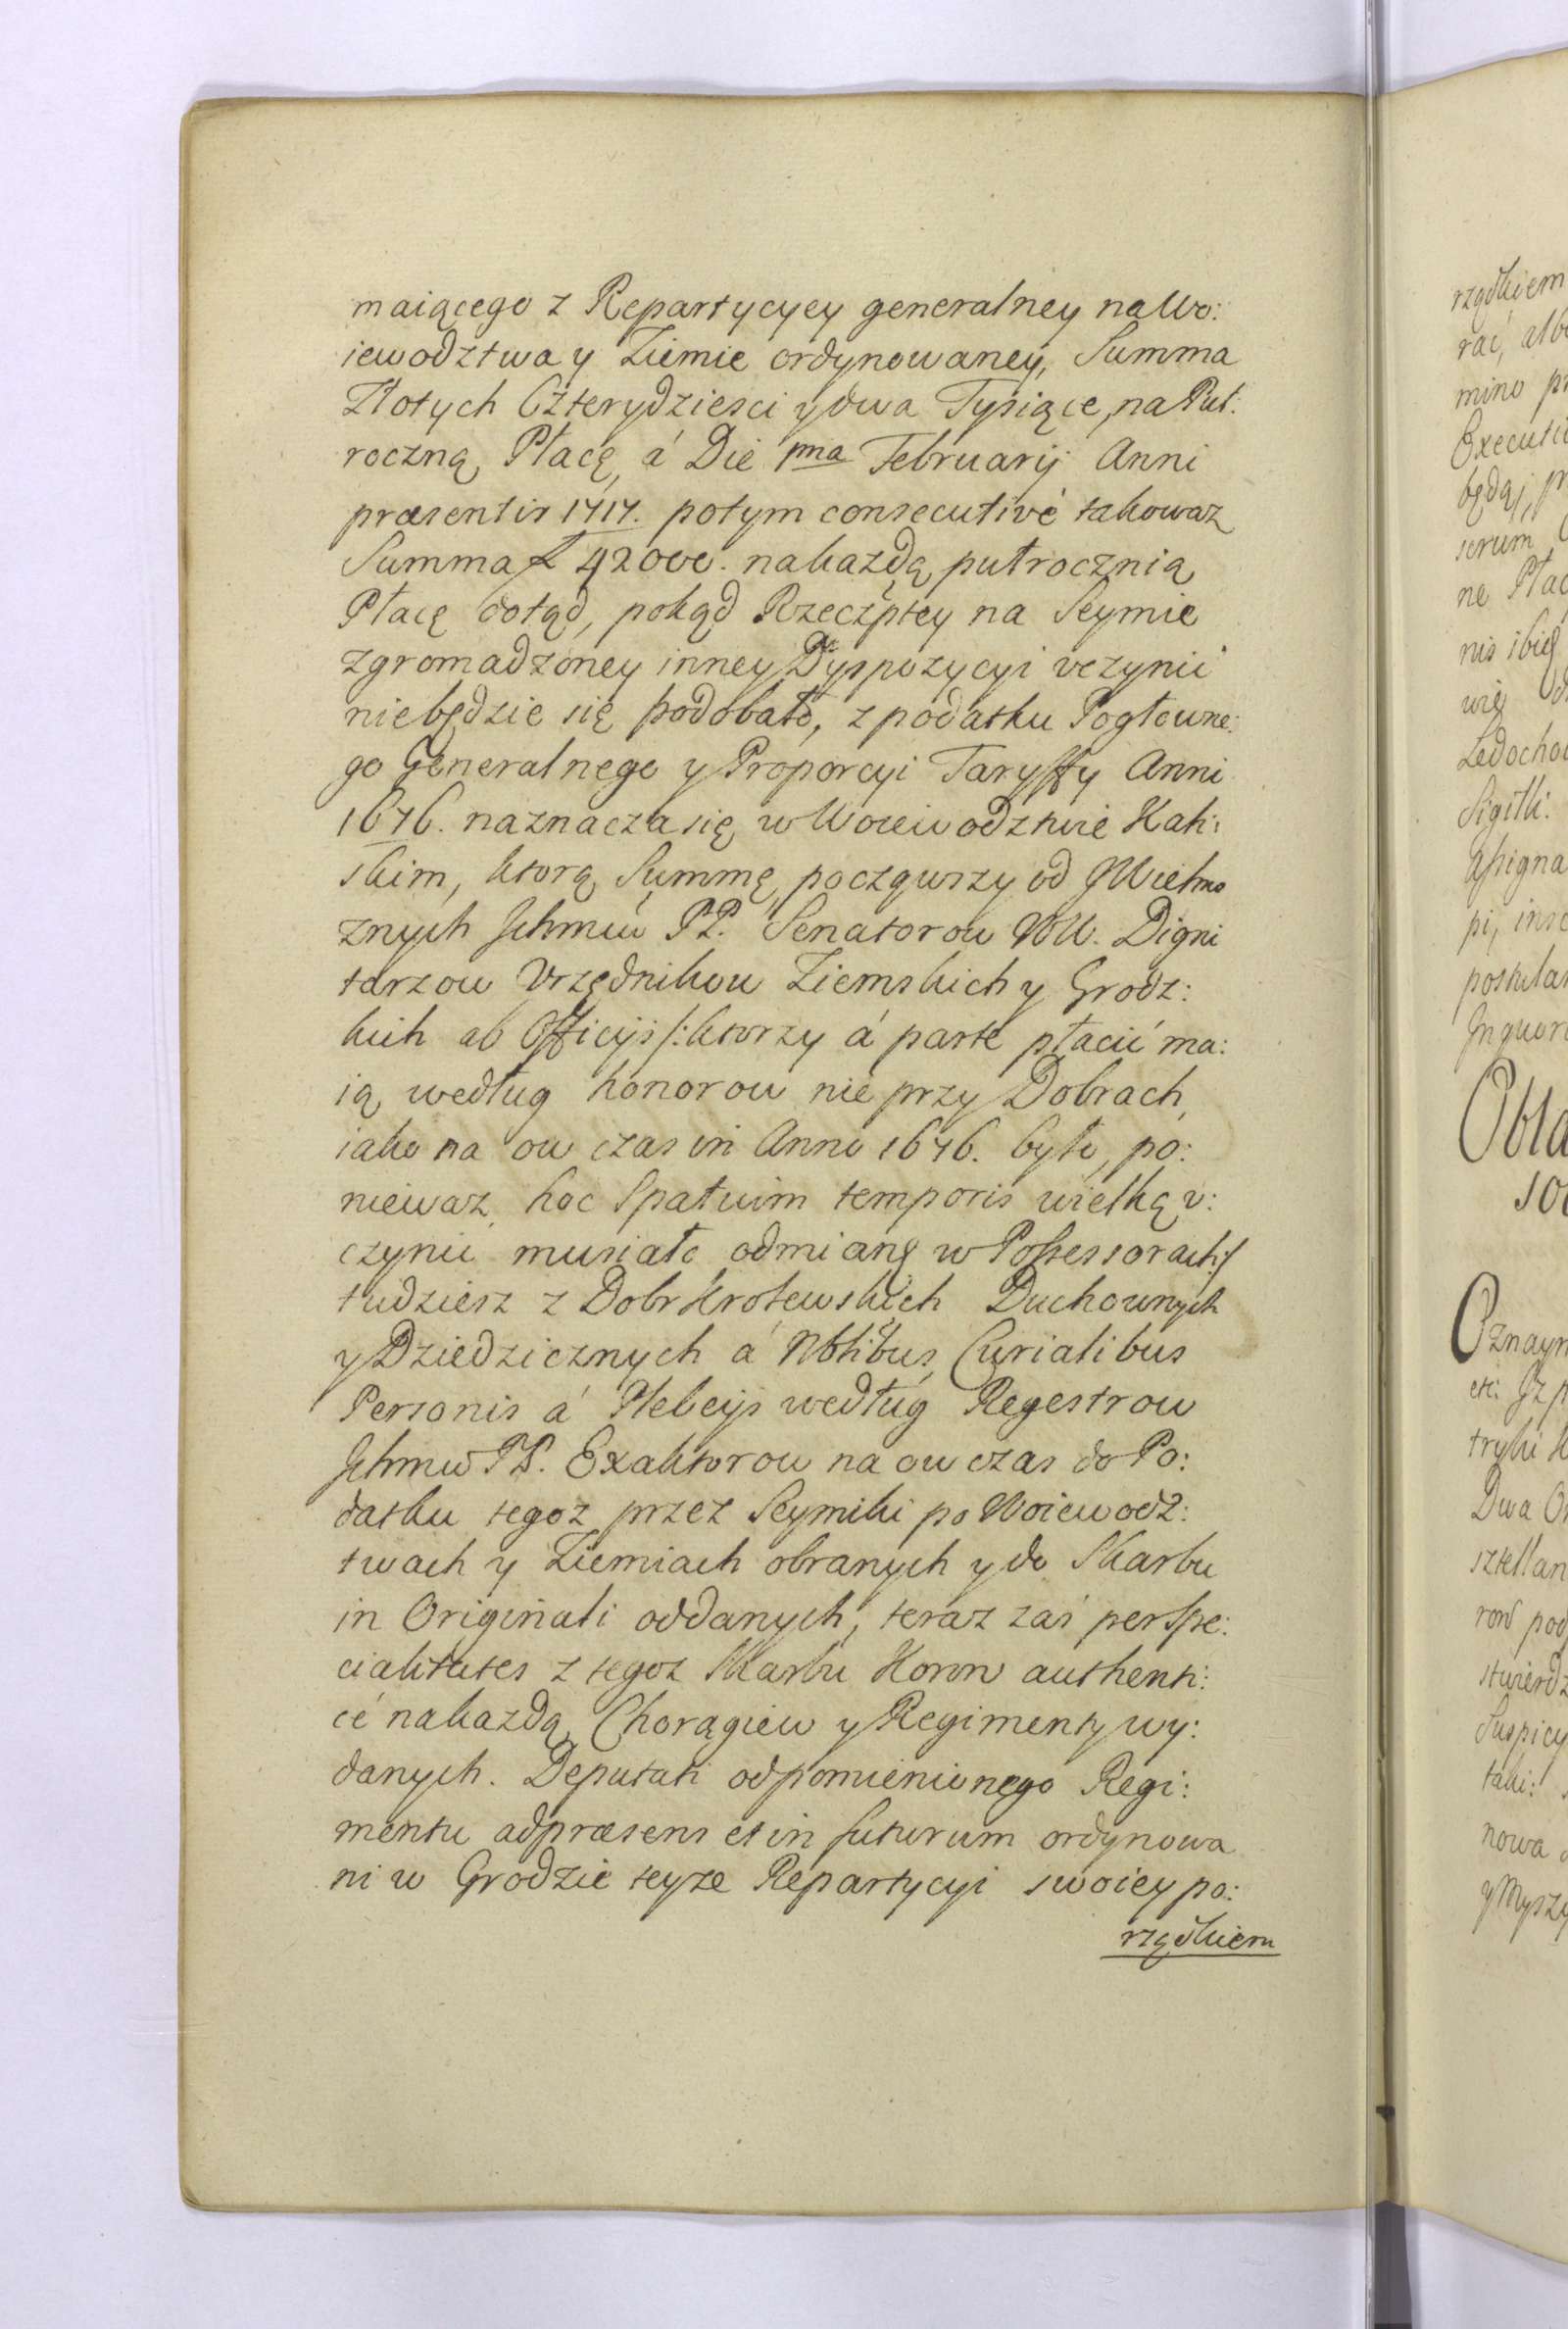 maiącego z Repartycyey generalney na Wo:
iewodztwa y Ziemie ordynowaney, Summa
Złotych Czterydziesci y dwa Tysiące, na Puł:
roczną Płacę, á Die 1ma Februarij Anni
præsentis 1717. potym consecutivé takowaz
Summa ƚ 42000. na kazdą pułrocznią
Płacę dotąd, pokąd Rzeczptey na Seymie
zgromadzoney inney Dyspozycyi vczynić
niebędzie się podobało, z podatku Pogłowne:
go Generalnego y Proporcyi Taryffy Anni
1676. naznacza się w Woiewodztwie Kali:
skim, ktorą Summę począwszy od JWielmo
znych Jchmciu PP. Senatorow WW. Digni
tarzow Vrzędnikow Ziemskich y Grodz:
kich ab Officijs /: ktorzy á parte płacić ma:
ią według honorow nie przy Dobrach,
iako na ow czas in Anno 1676. było, po:
niewaz hoc Spatium temporis wielką v:
czynic musiało odmianę w Possessorach :/
tudziesz z Dobr Krolewskich Duchownych
y Dziedzicznych á Nblibus, Curialibus
Personis á Plebeijs według Regestrow
Jchmciw PP. Exaktorow na ow czas do Po:
datku tegoz przez Seymiki po Woiewodz:
twach y Ziemiach obranych y do Skarbu
in Originali oddanych, teraz zaś per Spe:
cialitates z tegoz Skarbu Koron authenti:
cé na kazdą Chorągiew y Regimenty wy:
danych. Deputati od pomienionego Regi:
mentu ad præsens et in futurum ordynowa
ni w Grodzie teyze Repartycyi swoiey po:
rządkiem
rządkiem
mino
będą,
ne
Sigilli:
pi,
Dwa
nowa